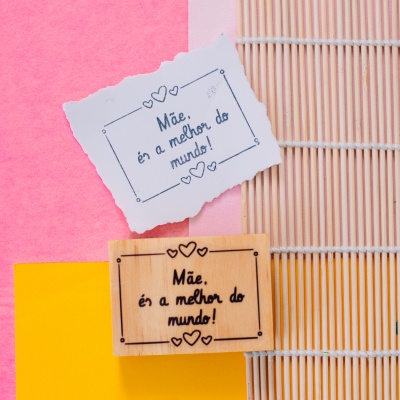 Mãe,
és a melhor do
mundo!
Mãe,
és a melhor do
mundo!